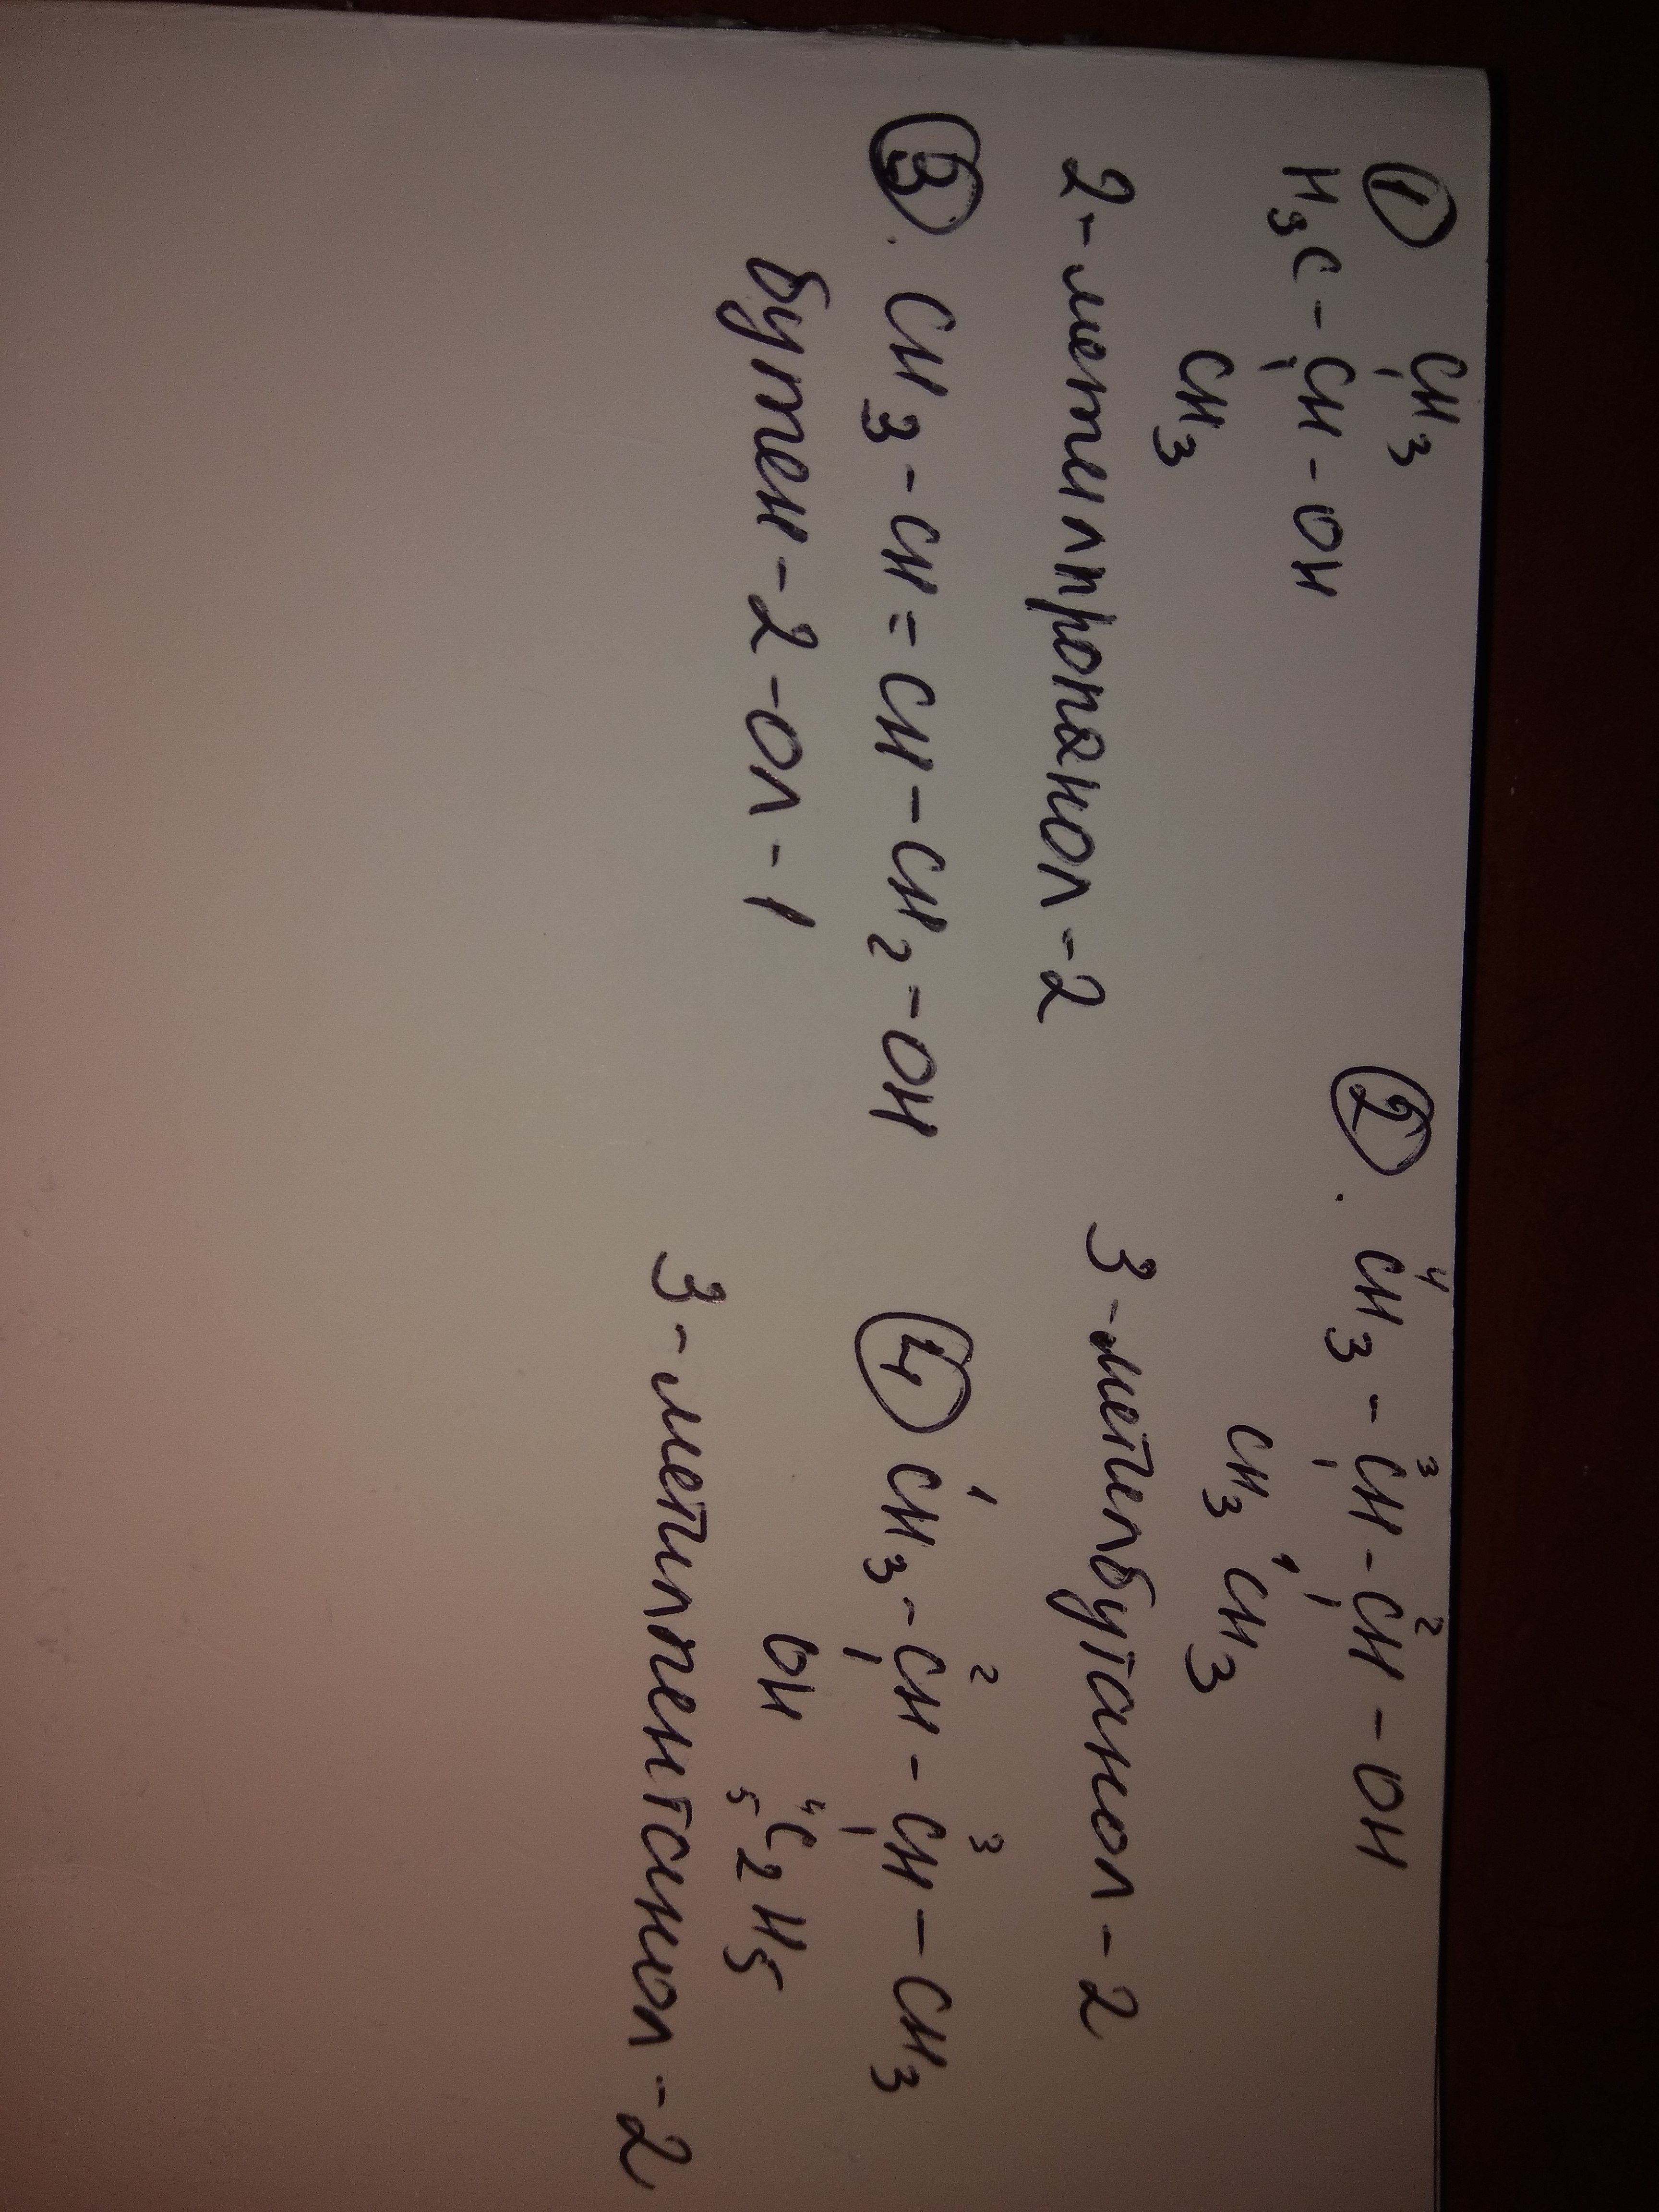 ① CH₃
H₃C-CH-OH
CH₃
2-метилпропанол-2
②. ⁴CH₃-³CH-²CH-OH
CH₃ ¹CH₃
3-метилбутанол-2
③. CH₃-CH=CH-CH₂-OH
бутен-2-ол-1
④ ¹CH₃-²CH-³CH-CH₃
OH ⁴₅C₂H₅
3-метилпентанол-2